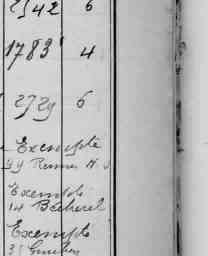 2542 6
1783 4
2729 6
Exempte
99 Rennes
Exempte
14 Becherel
Exempte
35